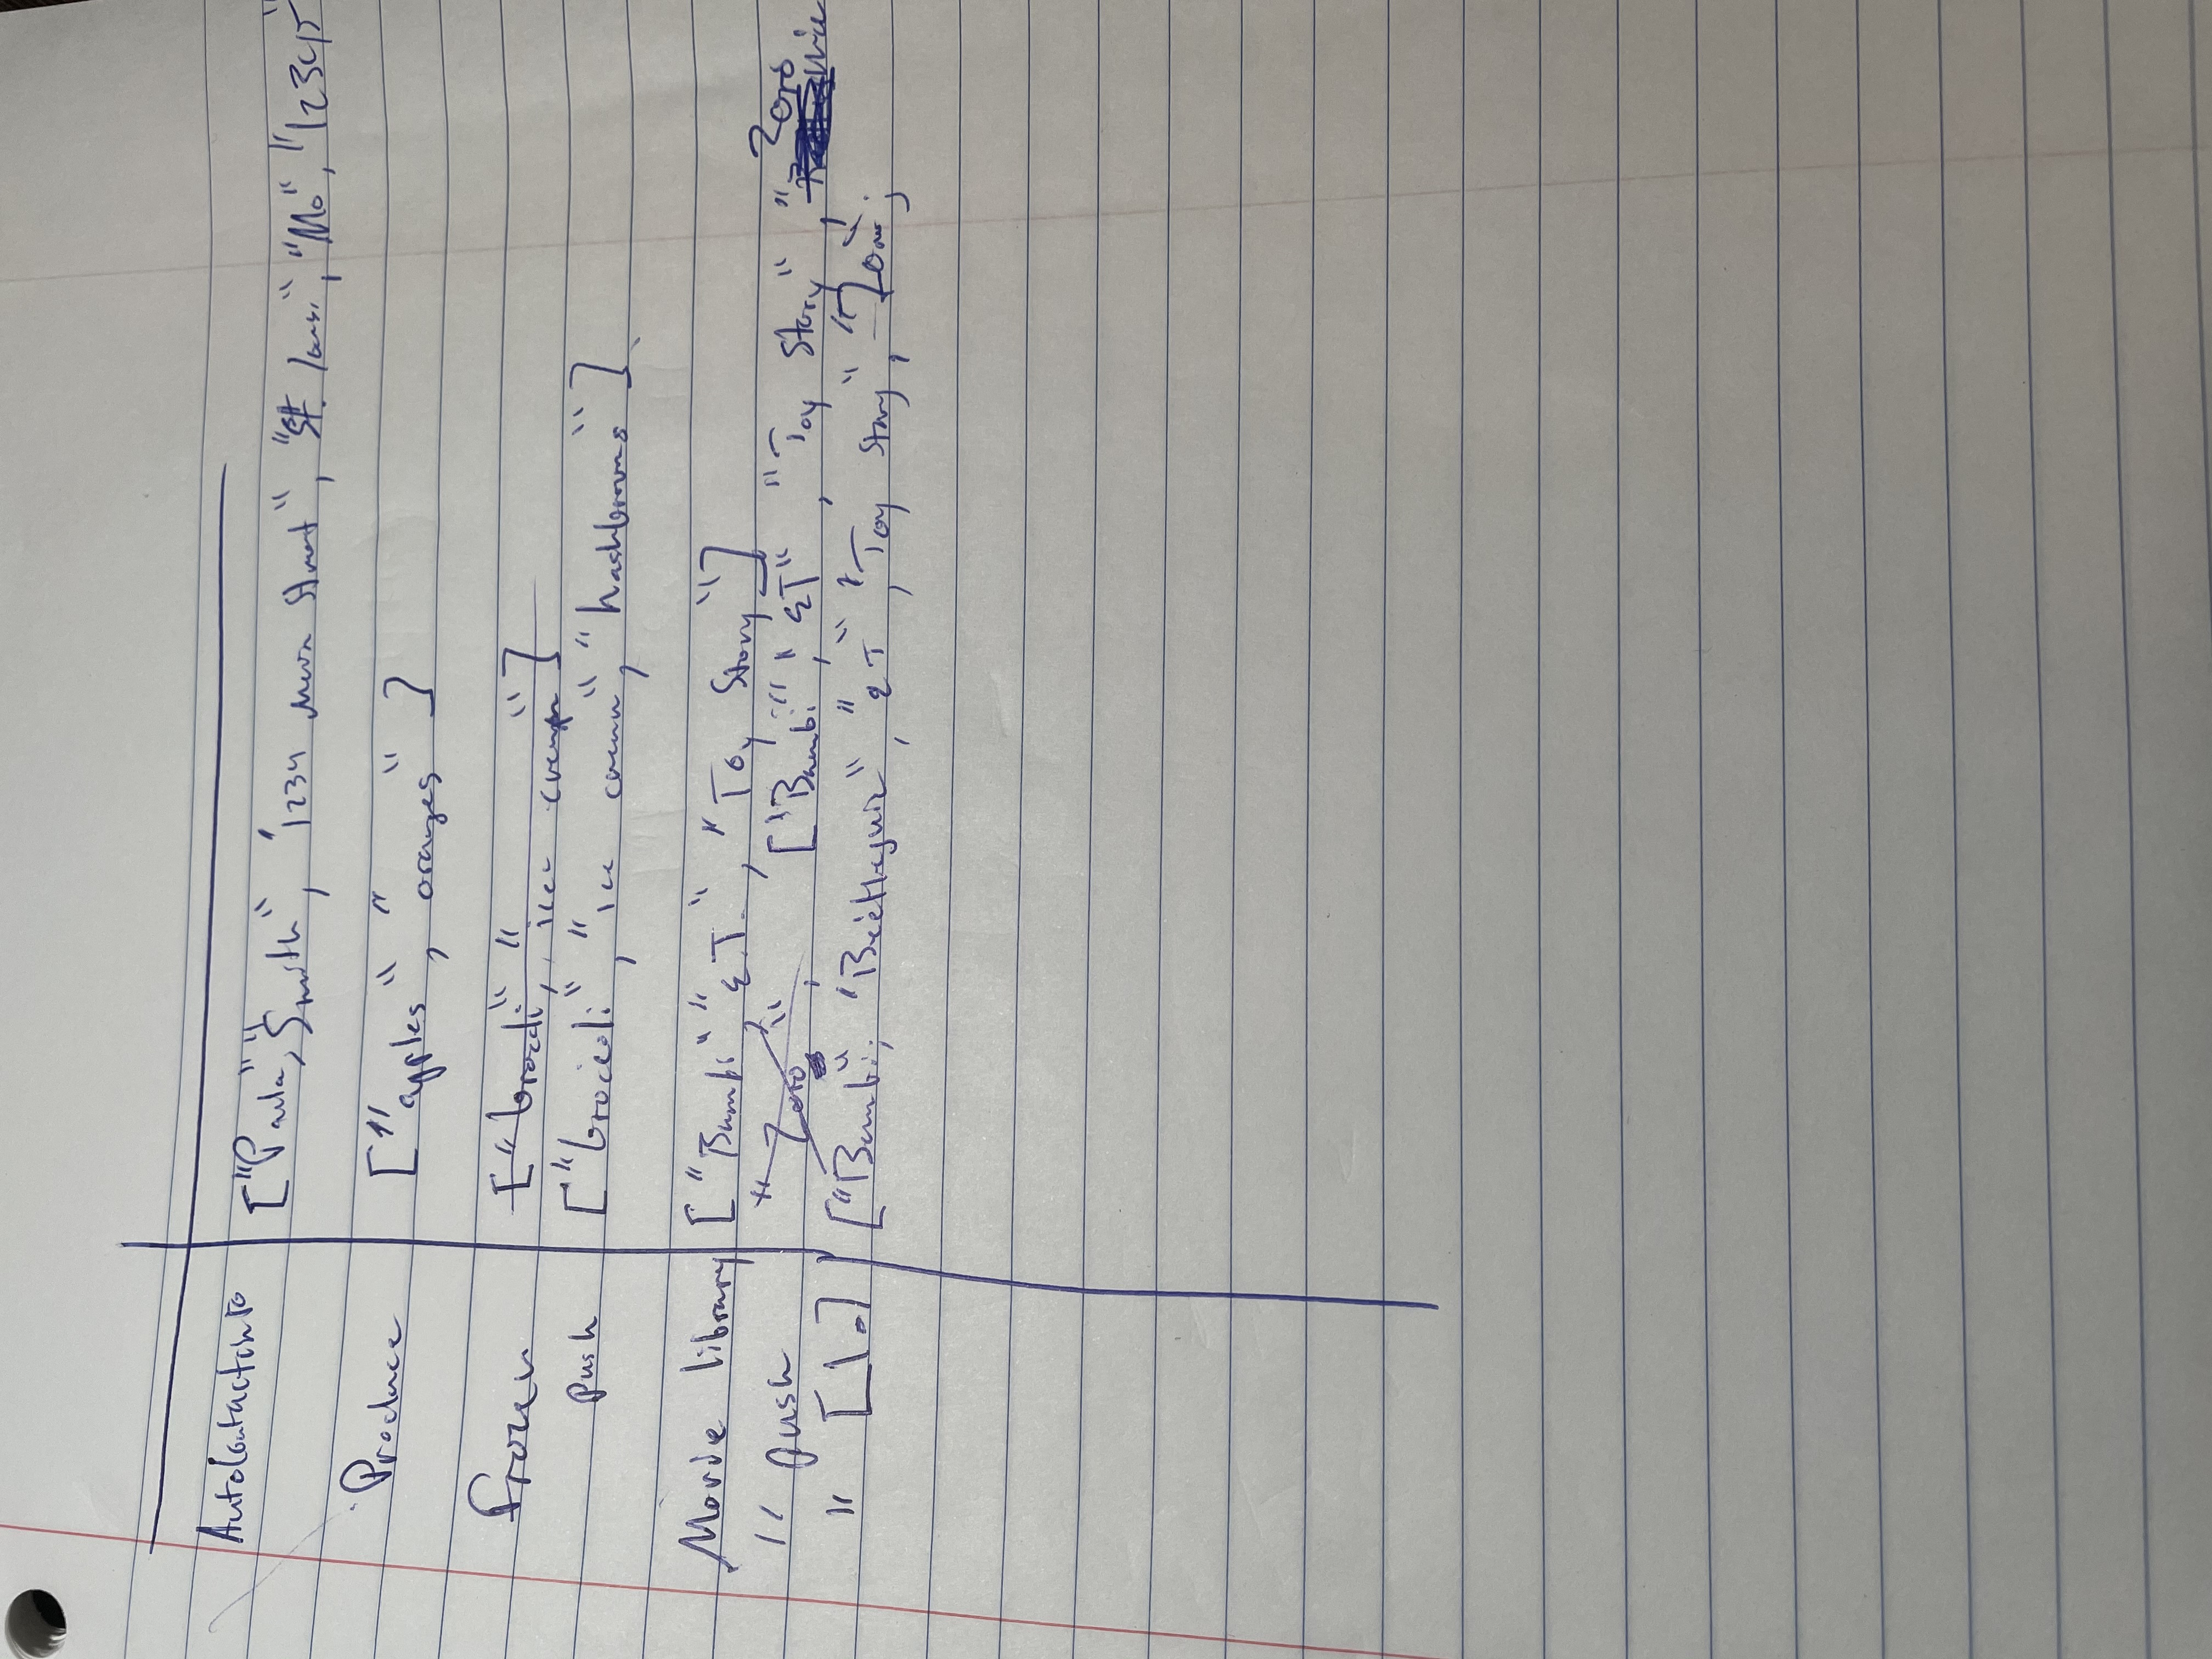 AutoContactInfo ["Paula", "Smith", "1234 Main Street", "St. Louis", "Mo", "12345"
Produce ["apples", "oranges"]
Frozen ["brocoli", "ice cream"]
push ["broccoli", "ice cream", "hashbrowns"]
Movie library ["Bambi", "E.T.", "Toy Story"]
" push "Zoro", ["Bambi", "ET", "Toy Story", "Zoro
" [1.] ["Bambi", "Beetlejuic", "ET", "Toy Story", "Zoro";